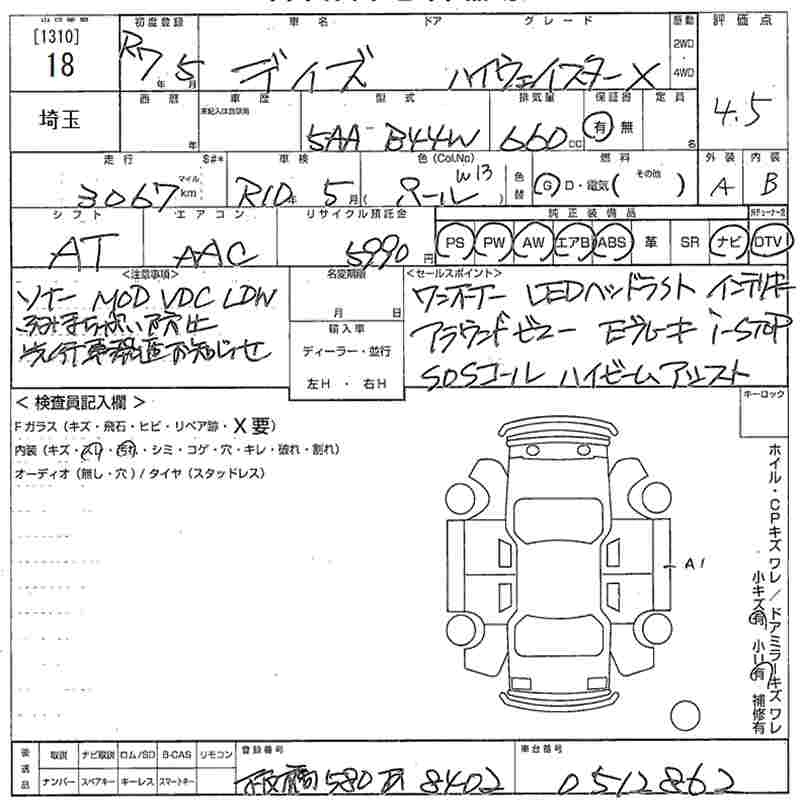 [1310]
18
埼玉
初度登録 車名 ドア グレード 駆動 評価点
R7年 5月 デイズ ハイウェイスターX 2WD 4WD 4.5
西暦 車歴 型式 排気量 保証書 定員
年 5AA-B44W 660cc 有 無 名
走行 S#* 車検 色(Col,No) 色替 燃料 外装 内装
3067 マイル km R10年 5月 パール W13 G D・電気( その他 ) A B
シフト エアコン リサイクル預託金 純正装備品
AT AAC 5990円 PS PW AW エアB ABS 革 SR ナビ DTV
<注意事項> 名変期限 <セールスポイント>
ソナー MOD VDC LDW
ふみまちがい防止
先行車発進お知らせ
月 日
輸入車
ディーラー・並行
左H ・ 右H
ワンオーナー LEDヘッドライト インテリキー
アラウンドビュー Eブレーキ i-STOP
SOSコール ハイビームアシスト
<検査員記入欄>
Fガラス(キズ・飛石・ヒビ・リペア跡・X要)
内装(キズ・スレ・汚れ・シミ・コゲ・穴・キレ・破れ・割れ)
オーディオ(無し・穴)/タイヤ(スタッドレス)
キーロック
A1
ホイル・CPキズ ワレ/ドアミラーキズ ワレ
小キズ有 小U有 補修有
後送品 取説 ナビ取説 ロム/SD B-CAS リモコン
ナンバー スペアキー キーレス スマートキー
登録番号
580 8402
車台番号
0512862